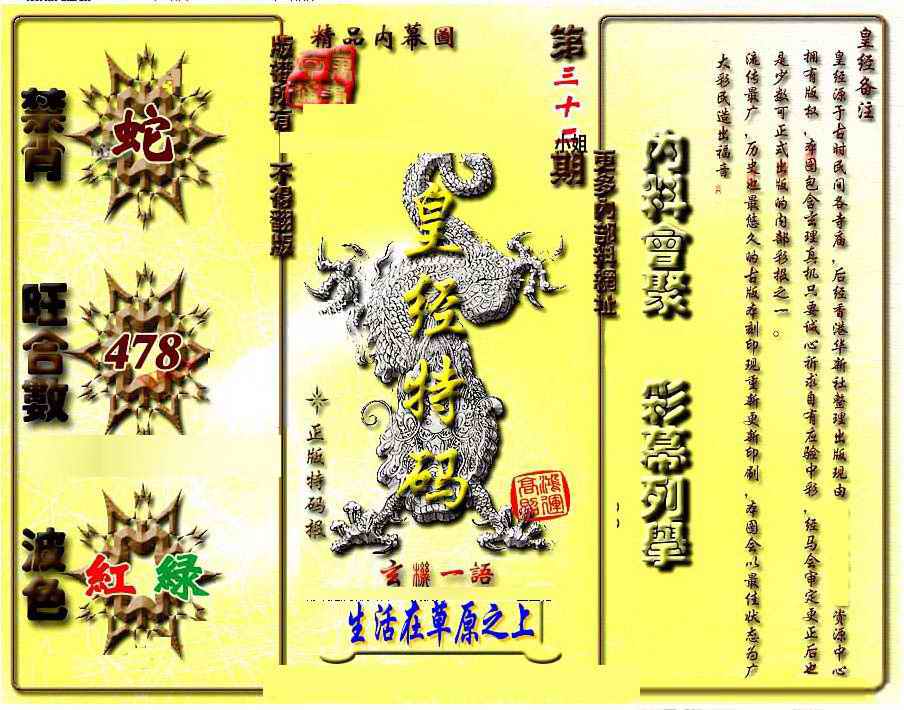 皇经备注
皇经源于古时民间各寺庙,后经香港华新社整理出版现由 资源中心
拥有版权,本图包含玄理真机只要诚心祈求自有应验中彩,经马会审定更正后也
是少数可正式出版的内部彩报之一。
流传最广,历史也最悠久的古版本刻印现重新更新印刷,本图会以最佳状态为广
大彩民造出福音
内料會聚
彩幕列舉
更多內部料網址
第三十二期
小姐
精品内幕圖
版權所有 不得翻版
皇经特码
正版特码报
鴻運高照
玄機一語
生活在草原之上
禁肖
蛇
旺合數
478
波色
紅 綠